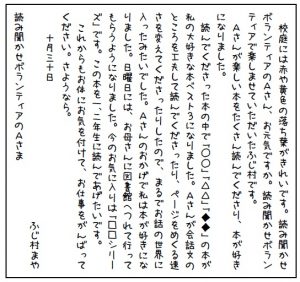 校庭には赤や黄色の落ち葉がきれいです。読み聞かせ
ボランティアのAさん、お元気ですか。読み聞かせボラン
ティアで楽しませていただいたふじ村です。
Aさんが楽しい本をたくさん読んでくださり、本が好き
になりました。
読んでくださった本の中で「○○」「△△」「◆◆」の本が
私の大好きな本ベスト3になりました。Aさんが会話文の
ところを工夫して読んでくださったり、ページをめくる速
さを変えてくださったりしたので、まるでお話の世界に
入ったみたいでした。Aさんのおかげで私は本が好きにな
りました。日曜日には、お母さんに図書館へつれて行って
もらうようになりました。今のお気に入りは「□□シリー
ズ」です。この本を一、二年生に読んであげたいです。
これからもお体にお気を付けて、お仕事をがんばって
ください。さようなら。
十月三十日
ふじ村まや
読み聞かせボランティアのAさま